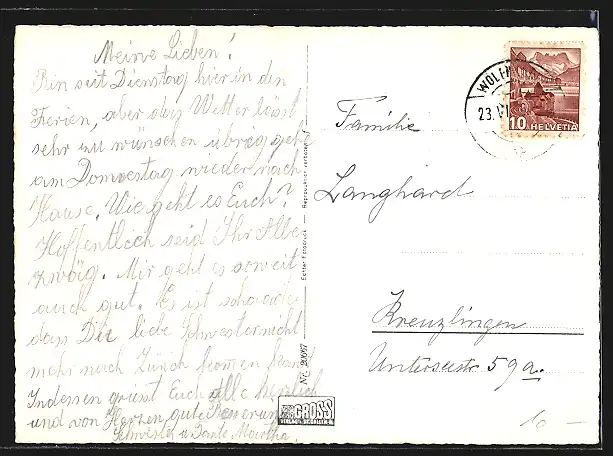 Meine Lieben!
Bin seit Dienstag hier in den
Ferien, aber das Wetter lässt
sehr zu wünschen übrig, gehe
am Donnestag wieder nach
Hause. Wie geht es Euch?
Hoffentlich seid Ihr Alle
zwäg. Mir geht es soweit
auch gut. Es ist schade
dass Du liebe Schwester nicht
mehr nach Zürich kommen
Indessen grüsst Euch alle herzlich
und von Herzen, gute Besserung
Schwester u Tante Martha.
Echter Fotodruck — Reproduktion verboten!
Nr. 20067
GROSS
WOLF
23. VI
10 HELVETIA
Familie
Langhard
Kreuzlingen
Unterseestr. 59a.
10 -